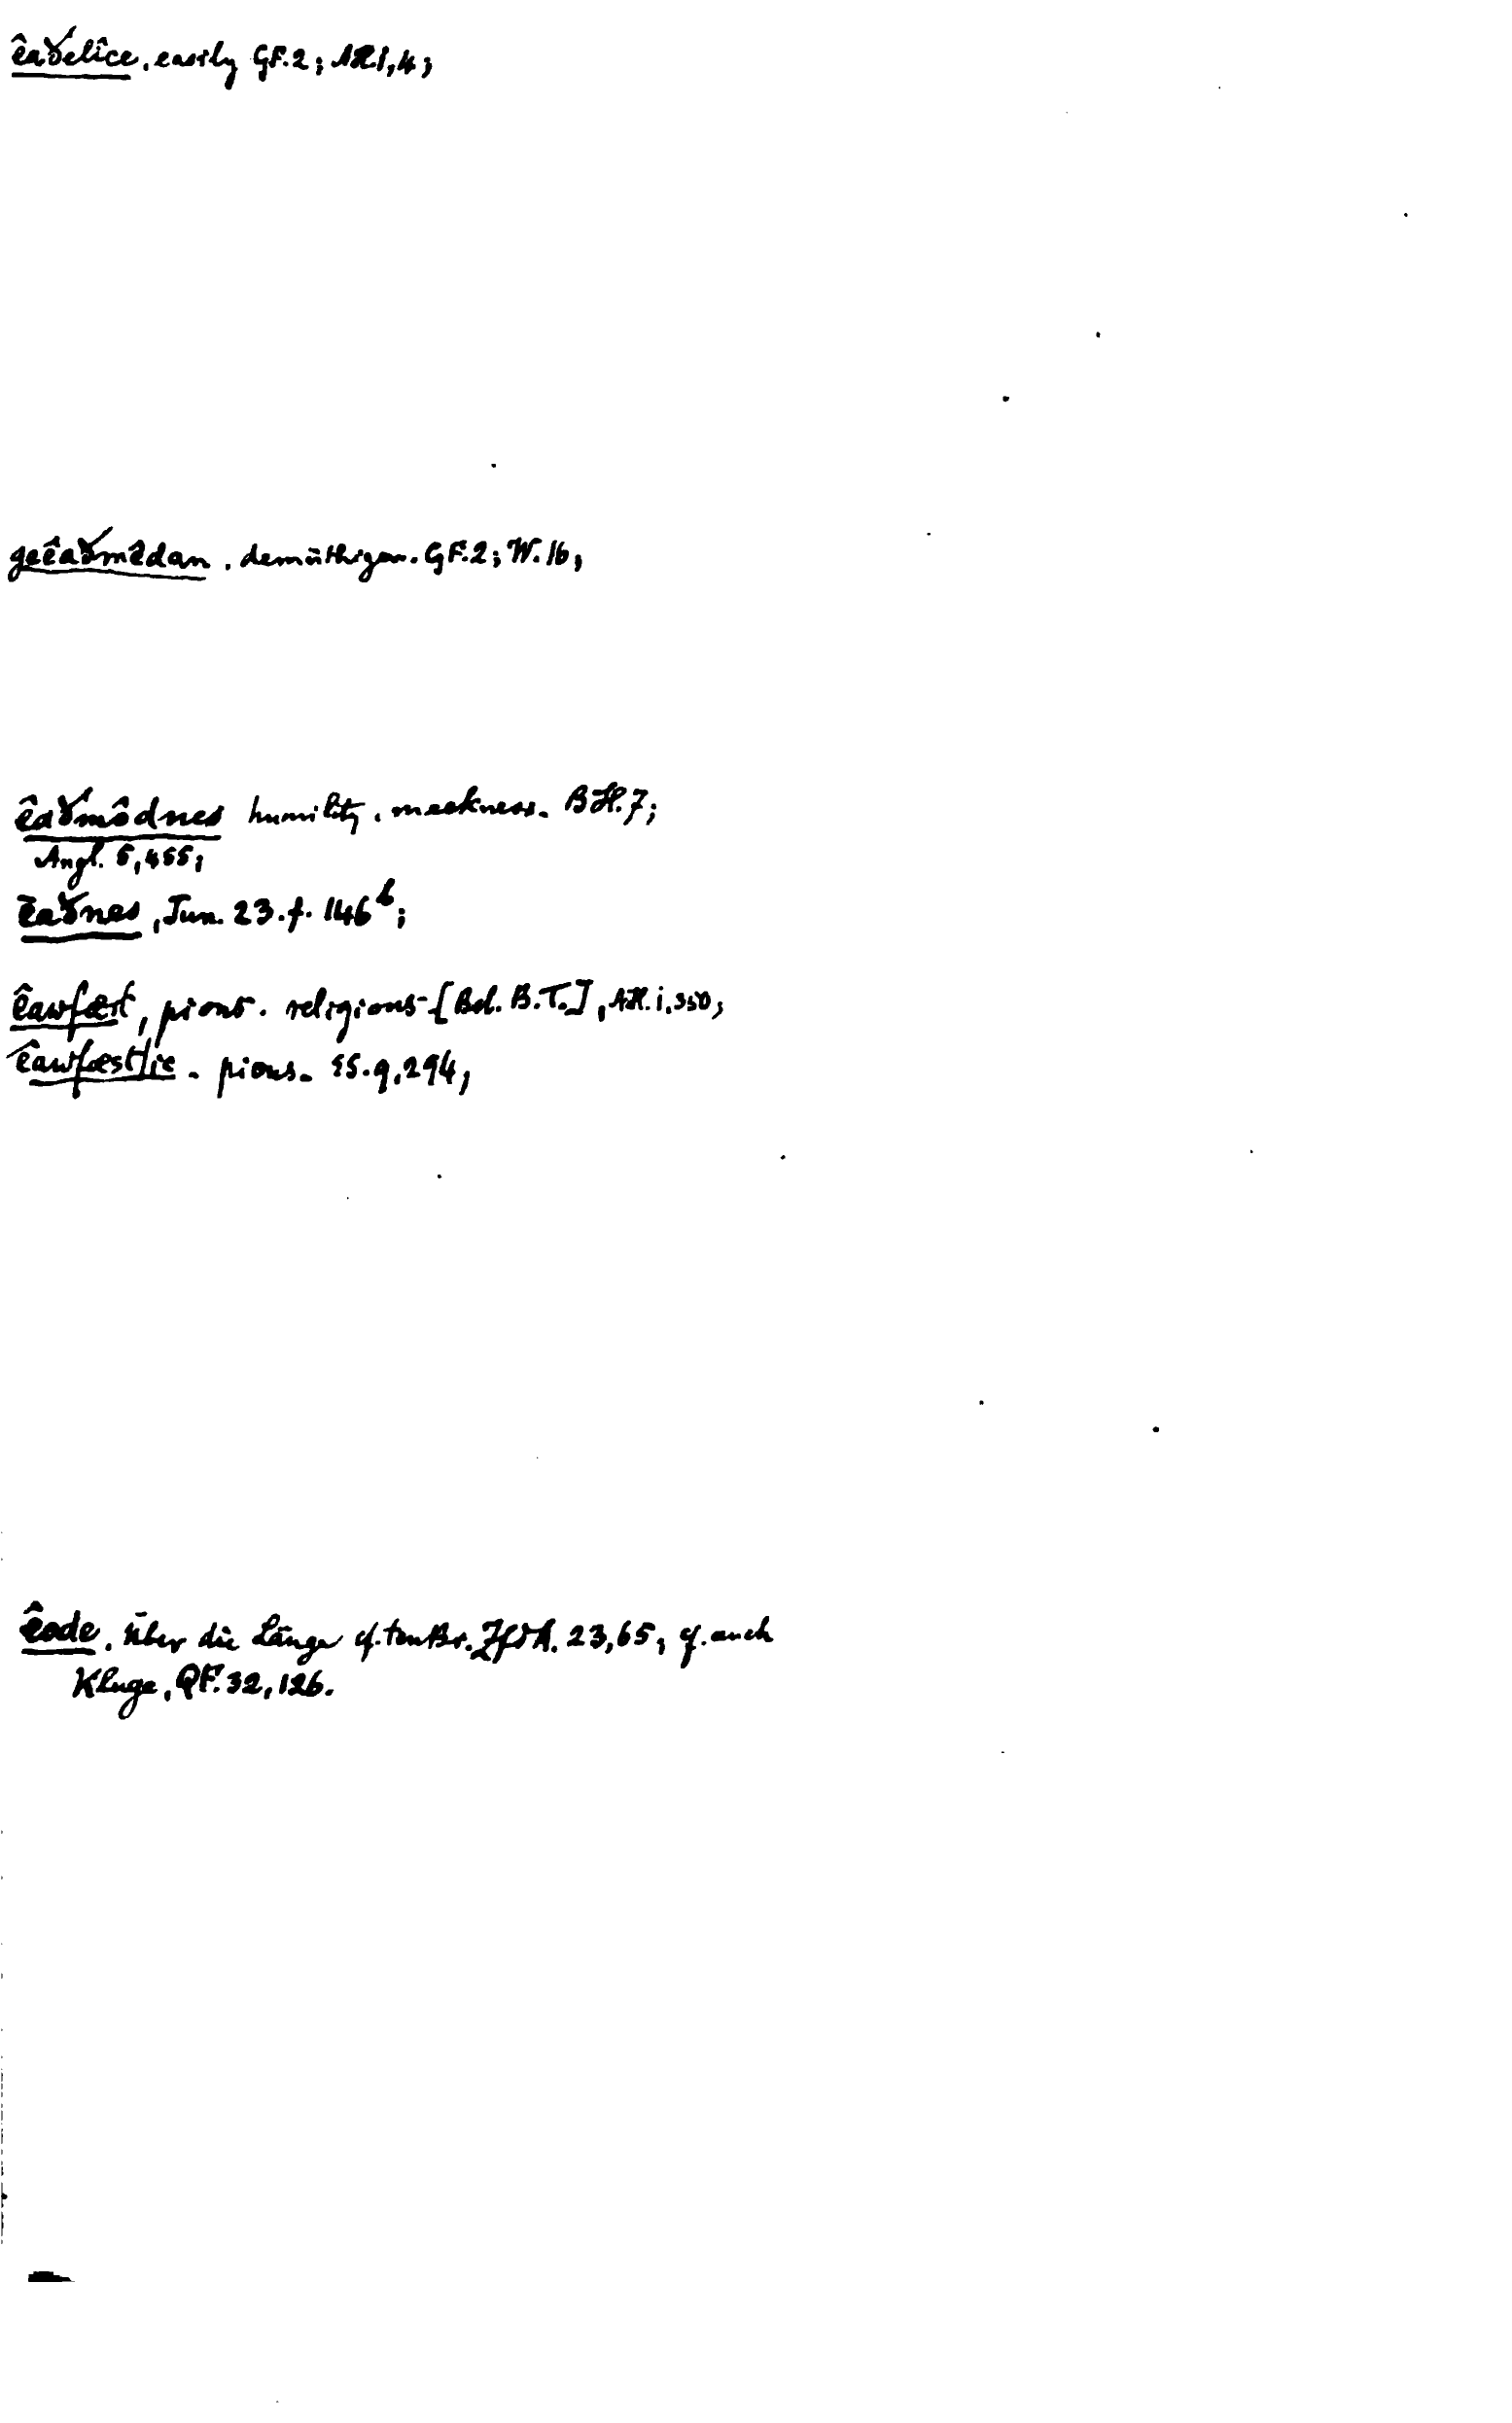 êaðelîce, easily GF.2; ÆH.1,4;
geêaðmêdan, demüthigen. GF.2; W.16;
êaðmôdnes humility, meekness. BH.7;
Angl. 5,455;
êaðnes, Jun. 23.f. 146b;
êawfæst, pious. religious [Bd. B.T.], ÆH.i.350;
êawfæstlic. pious. SS.9,294;
êode. über die Länge cf. tenBr. ZfdA. 23,65; cf. auch
Kluge, QF. 32, 126.